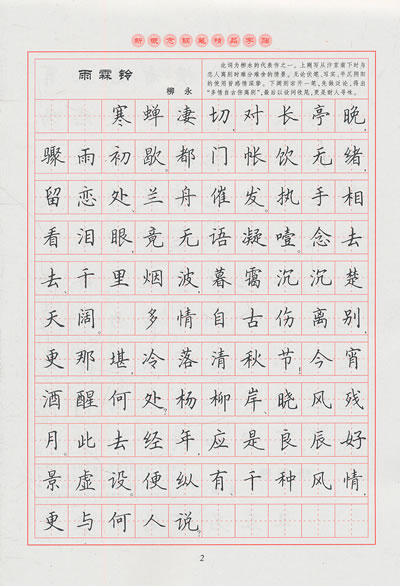 新概念精品字
雨霖铃
柳永
此词为柳永的代表作之一。上阕写从汴京南下时与
恋人离别时难分难舍的情景。无论伏笔、写实、平仄阴阳
的使用皆情深。下阕则宕开一笔，先做泛论，得出
“多情自古伤离别”，最后以设问收尾，更是耐人寻味。
寒蝉凄切，对长亭晚，
骤雨初歇。都门帐饮无绪，
留恋处、兰舟催发。执手相
看泪眼，竟无语凝噎。念去
去、千里烟波，暮霭沉沉楚
天阔。多情自古伤离别，
更那堪、冷落清秋节！今宵
酒醒何处？杨柳岸、晓风残
月。此去经年，应是良辰好
景虚设。便纵有千种风情，
更与何人说。
2